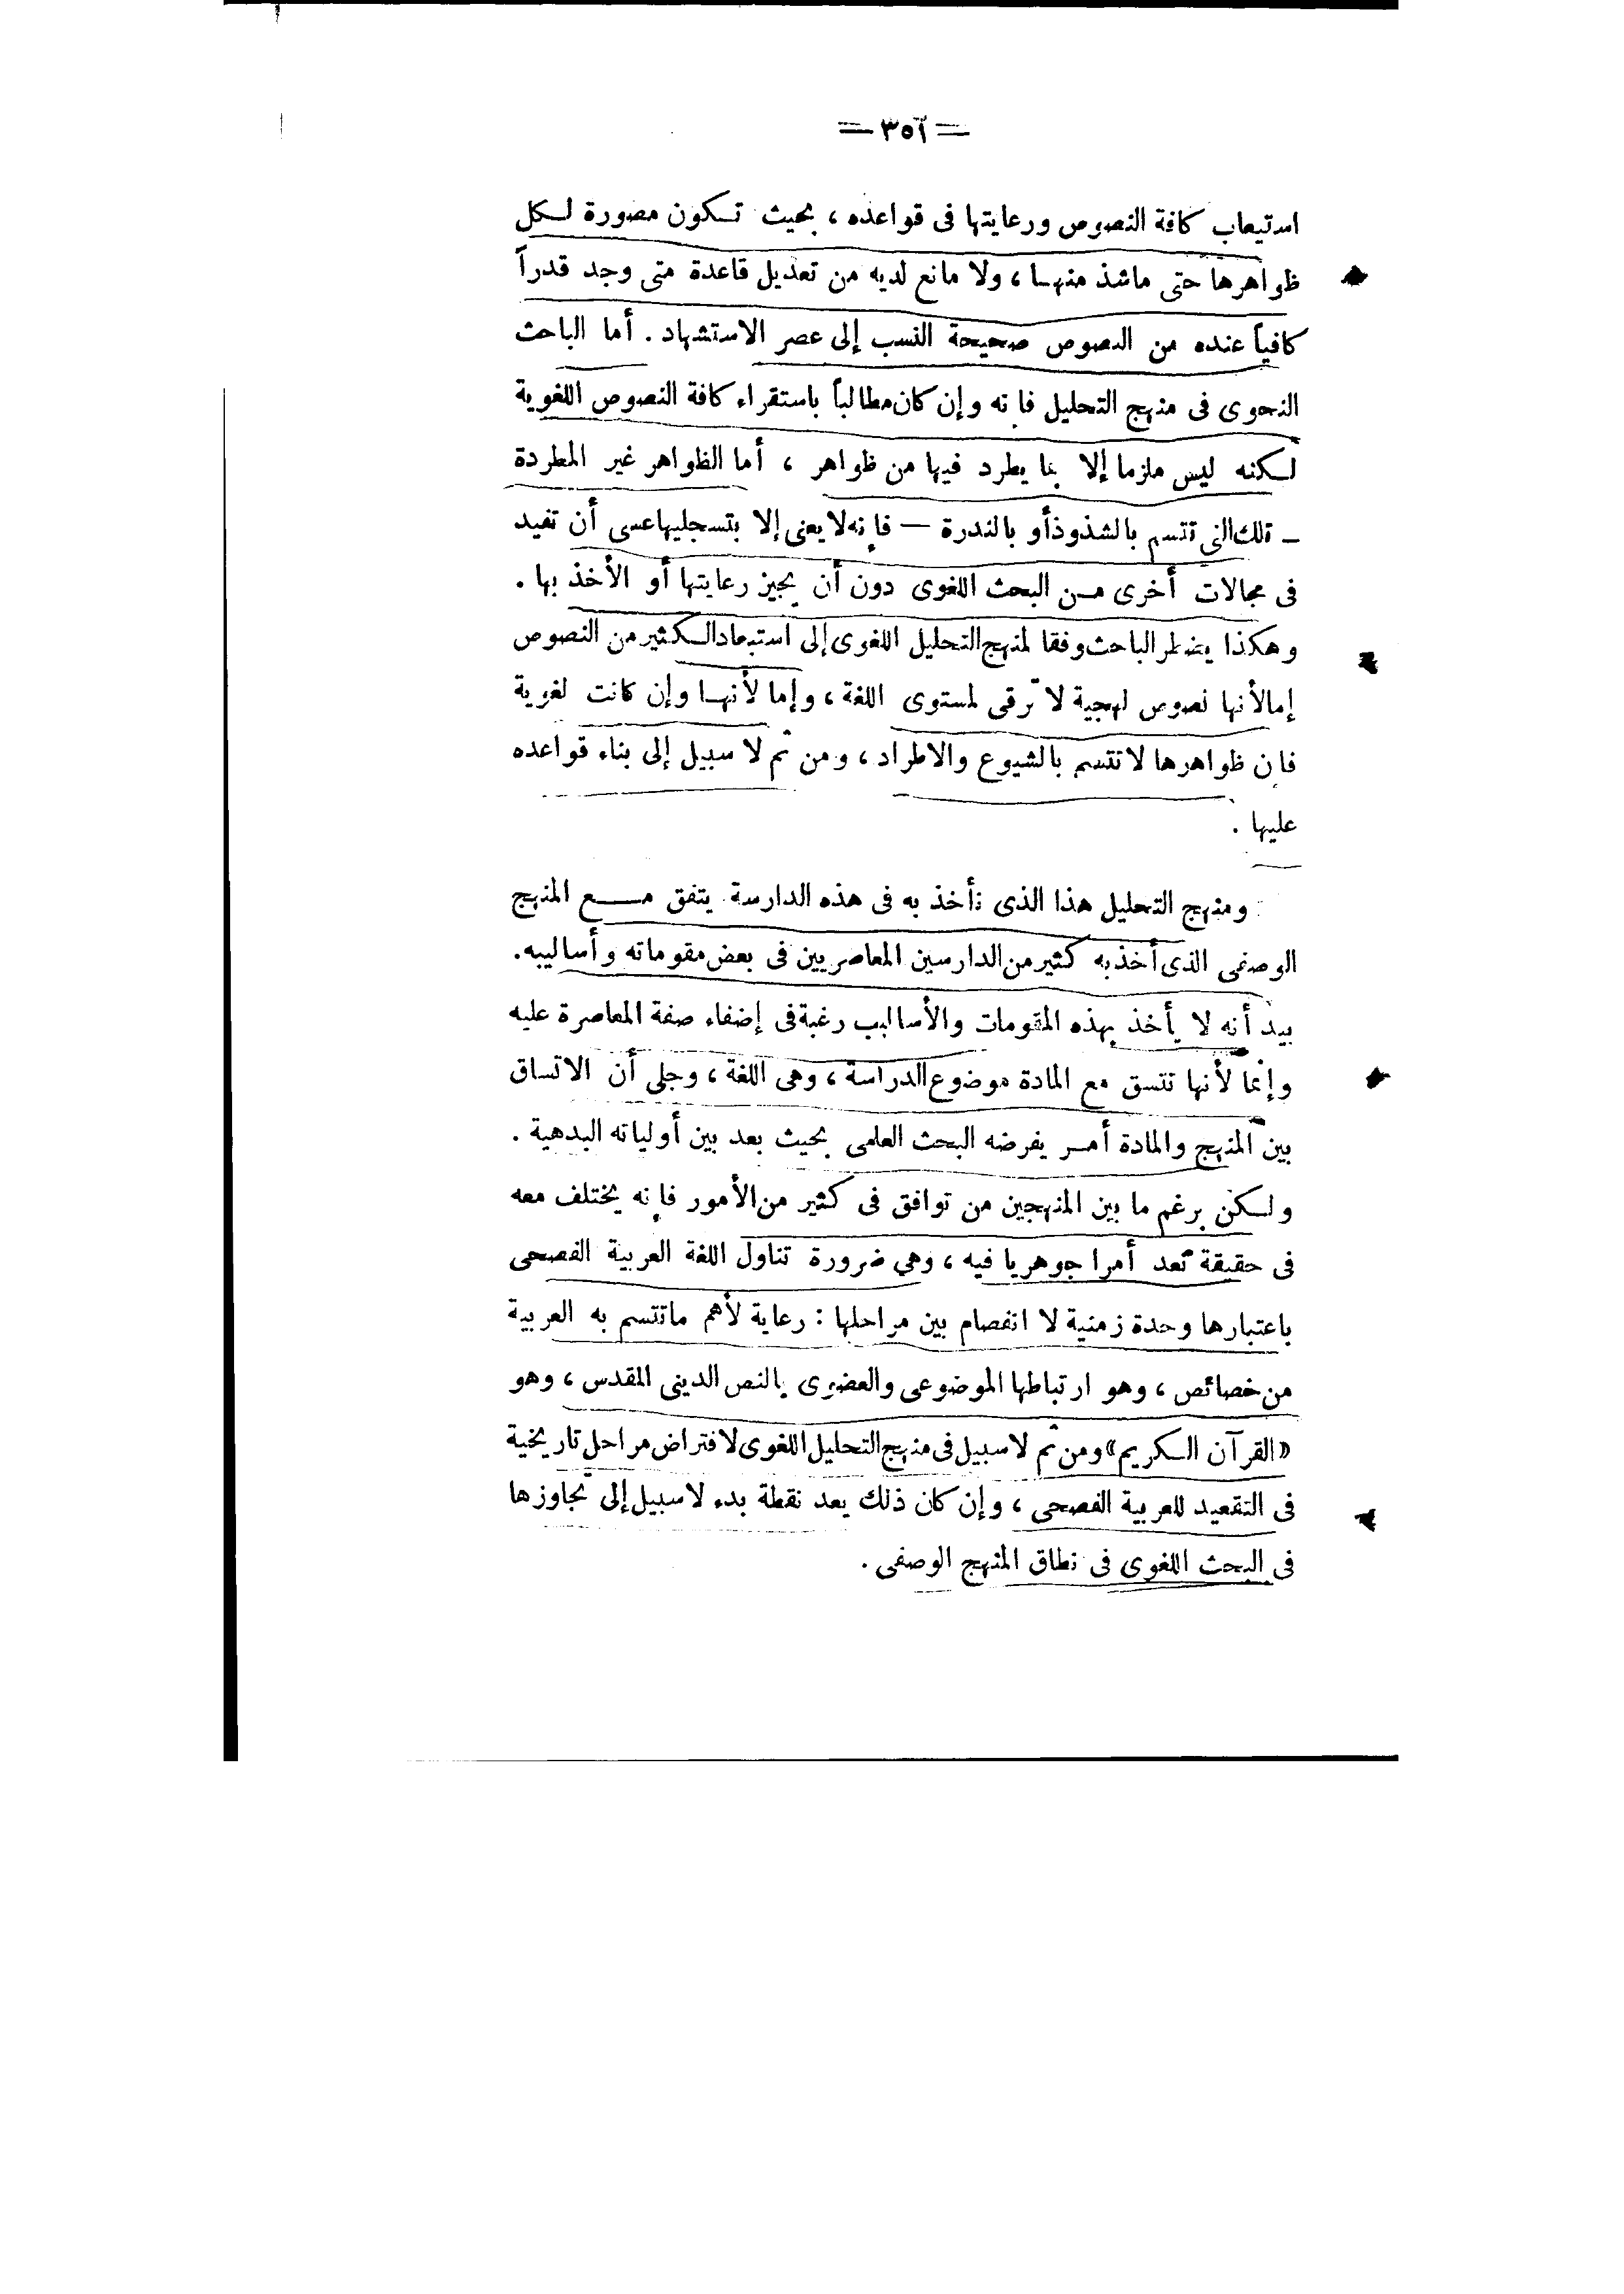 = ٣٥٦ =
استيعاب كافة النصوص ورعايتها فى قواعده ، بحيث تكون مصورة لكل
ظواهرها حتى ماشذ منها ، ولا مانع لديه من تعديل قاعدة متى وجد قدراً
كافياً عنده من النصوص صحيحة النسب إلى عصر الاستشهاد . أما الباحث
النحوى فى منهج التحليل فإنه وإن كان مطالباً باستقراء كافة النصوص اللغوية
لكنه ليس ملزما إلا بما يطرد فيها من ظواهر ، أما الظواهر غير المطردة
ــ تلك التى تتسم بالشذوذ أو بالندرة ــ فإنه لا يعنى إلا بتسجليها عسى أن تفيد
فى مجالات أخرى من البحث اللغوى دون أن يجيز رعايتها أو الأخذ بها .
وهكذا يضطر الباحث وفقا لمنهج التحليل اللغوى إلى استبعاد الكثير من النصوص
إما لأنها نصوص لهجية لا ترقى لمستوى اللغة ، وإما لأنها وإن كانت لغوية
فإن ظواهرها لا تتسم بالشيوع والاطراد ، ومن ثم لا سبيل إلى بناء قواعده
عليها .
ومنهج التحليل هذا الذى نأخذ به فى هذه الدارسة يتفق مع المنهج
الوصفى الذى أخذ به كثير من الدارسين المعاصريين فى بعض مقوماته وأساليبه .
بيد أنه لا يأخذ بهذه المقومات والأساليب رغبة فى إضفاء صفة المعاصرة عليه
وإنما لأنها تتسق مع المادة موضوع الدراسة ، وهى اللغة ، وجلى أن الاتساق
بين المنهج والمادة أمر يفرضه البحث العلمى بحيث بعد بين أولياته البدهية .
ولكن برغم ما بين المنهجين من توافق فى كثير من الأمور فإنه يختلف معه
فى حقيقة تعد أمرا جوهريا فيه ، وهي ضرورة تناول اللغة العربية الفصحى
باعتبارها وحدة زمنية لا انفصام بين مراحلها : رعاية لأهم ماتتسم به العربية
من خصائص ، وهو ارتباطها الموضوعى والعضوى بالنص الدينى المقدس ، وهو
«القرآن الكريم» ومن ثم لا سبيل فى منهج التحليل اللغوى لافتراض مراحل تاريخية
فى التقعيد للعربية الفصحى ، وإن كان ذلك يعد نقطة بدء لا سبيل إلى تجاوزها
فى البحث اللغوى فى نطاق المنهج الوصفى .